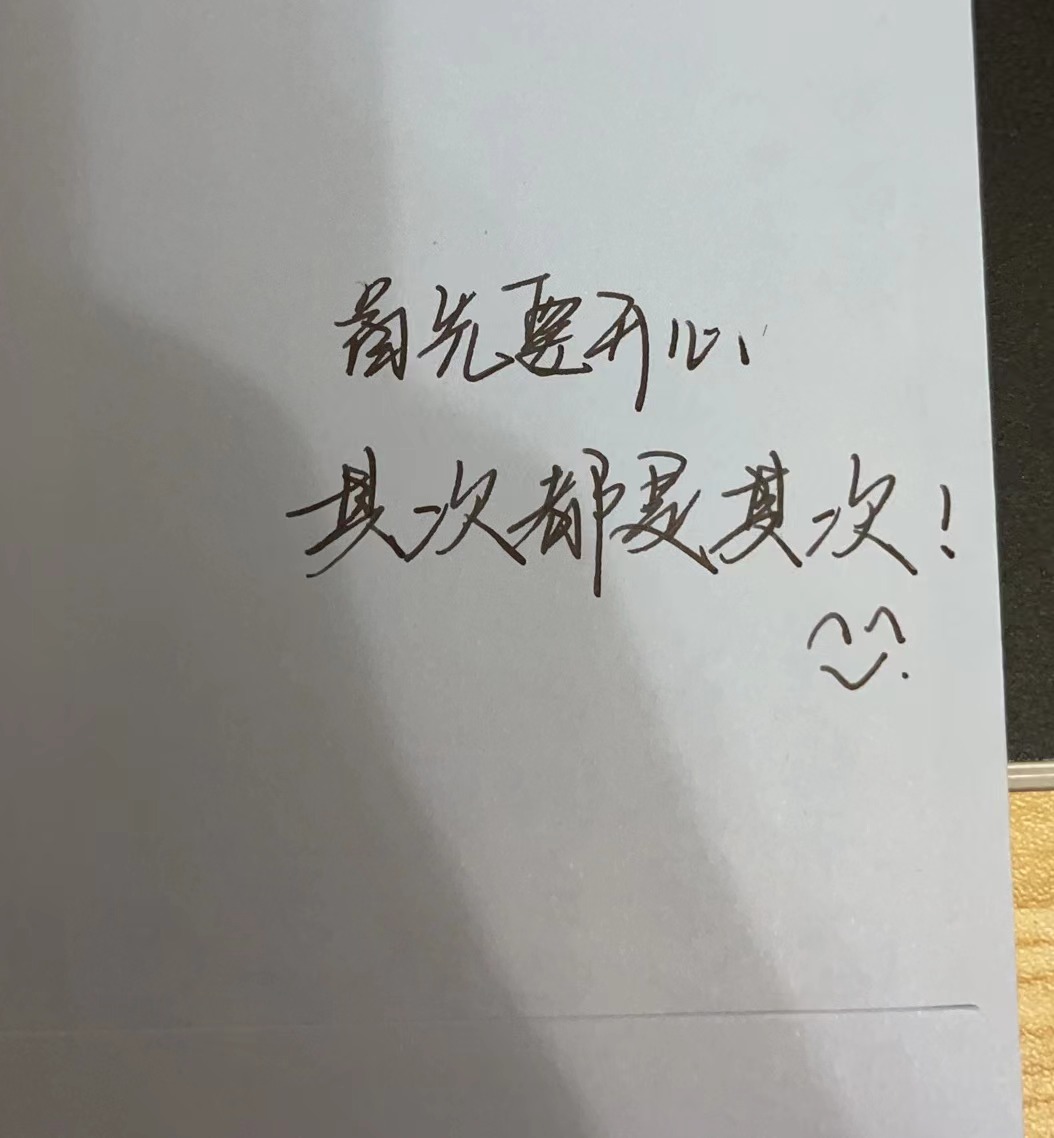 首先要开心、
其次都是其次！